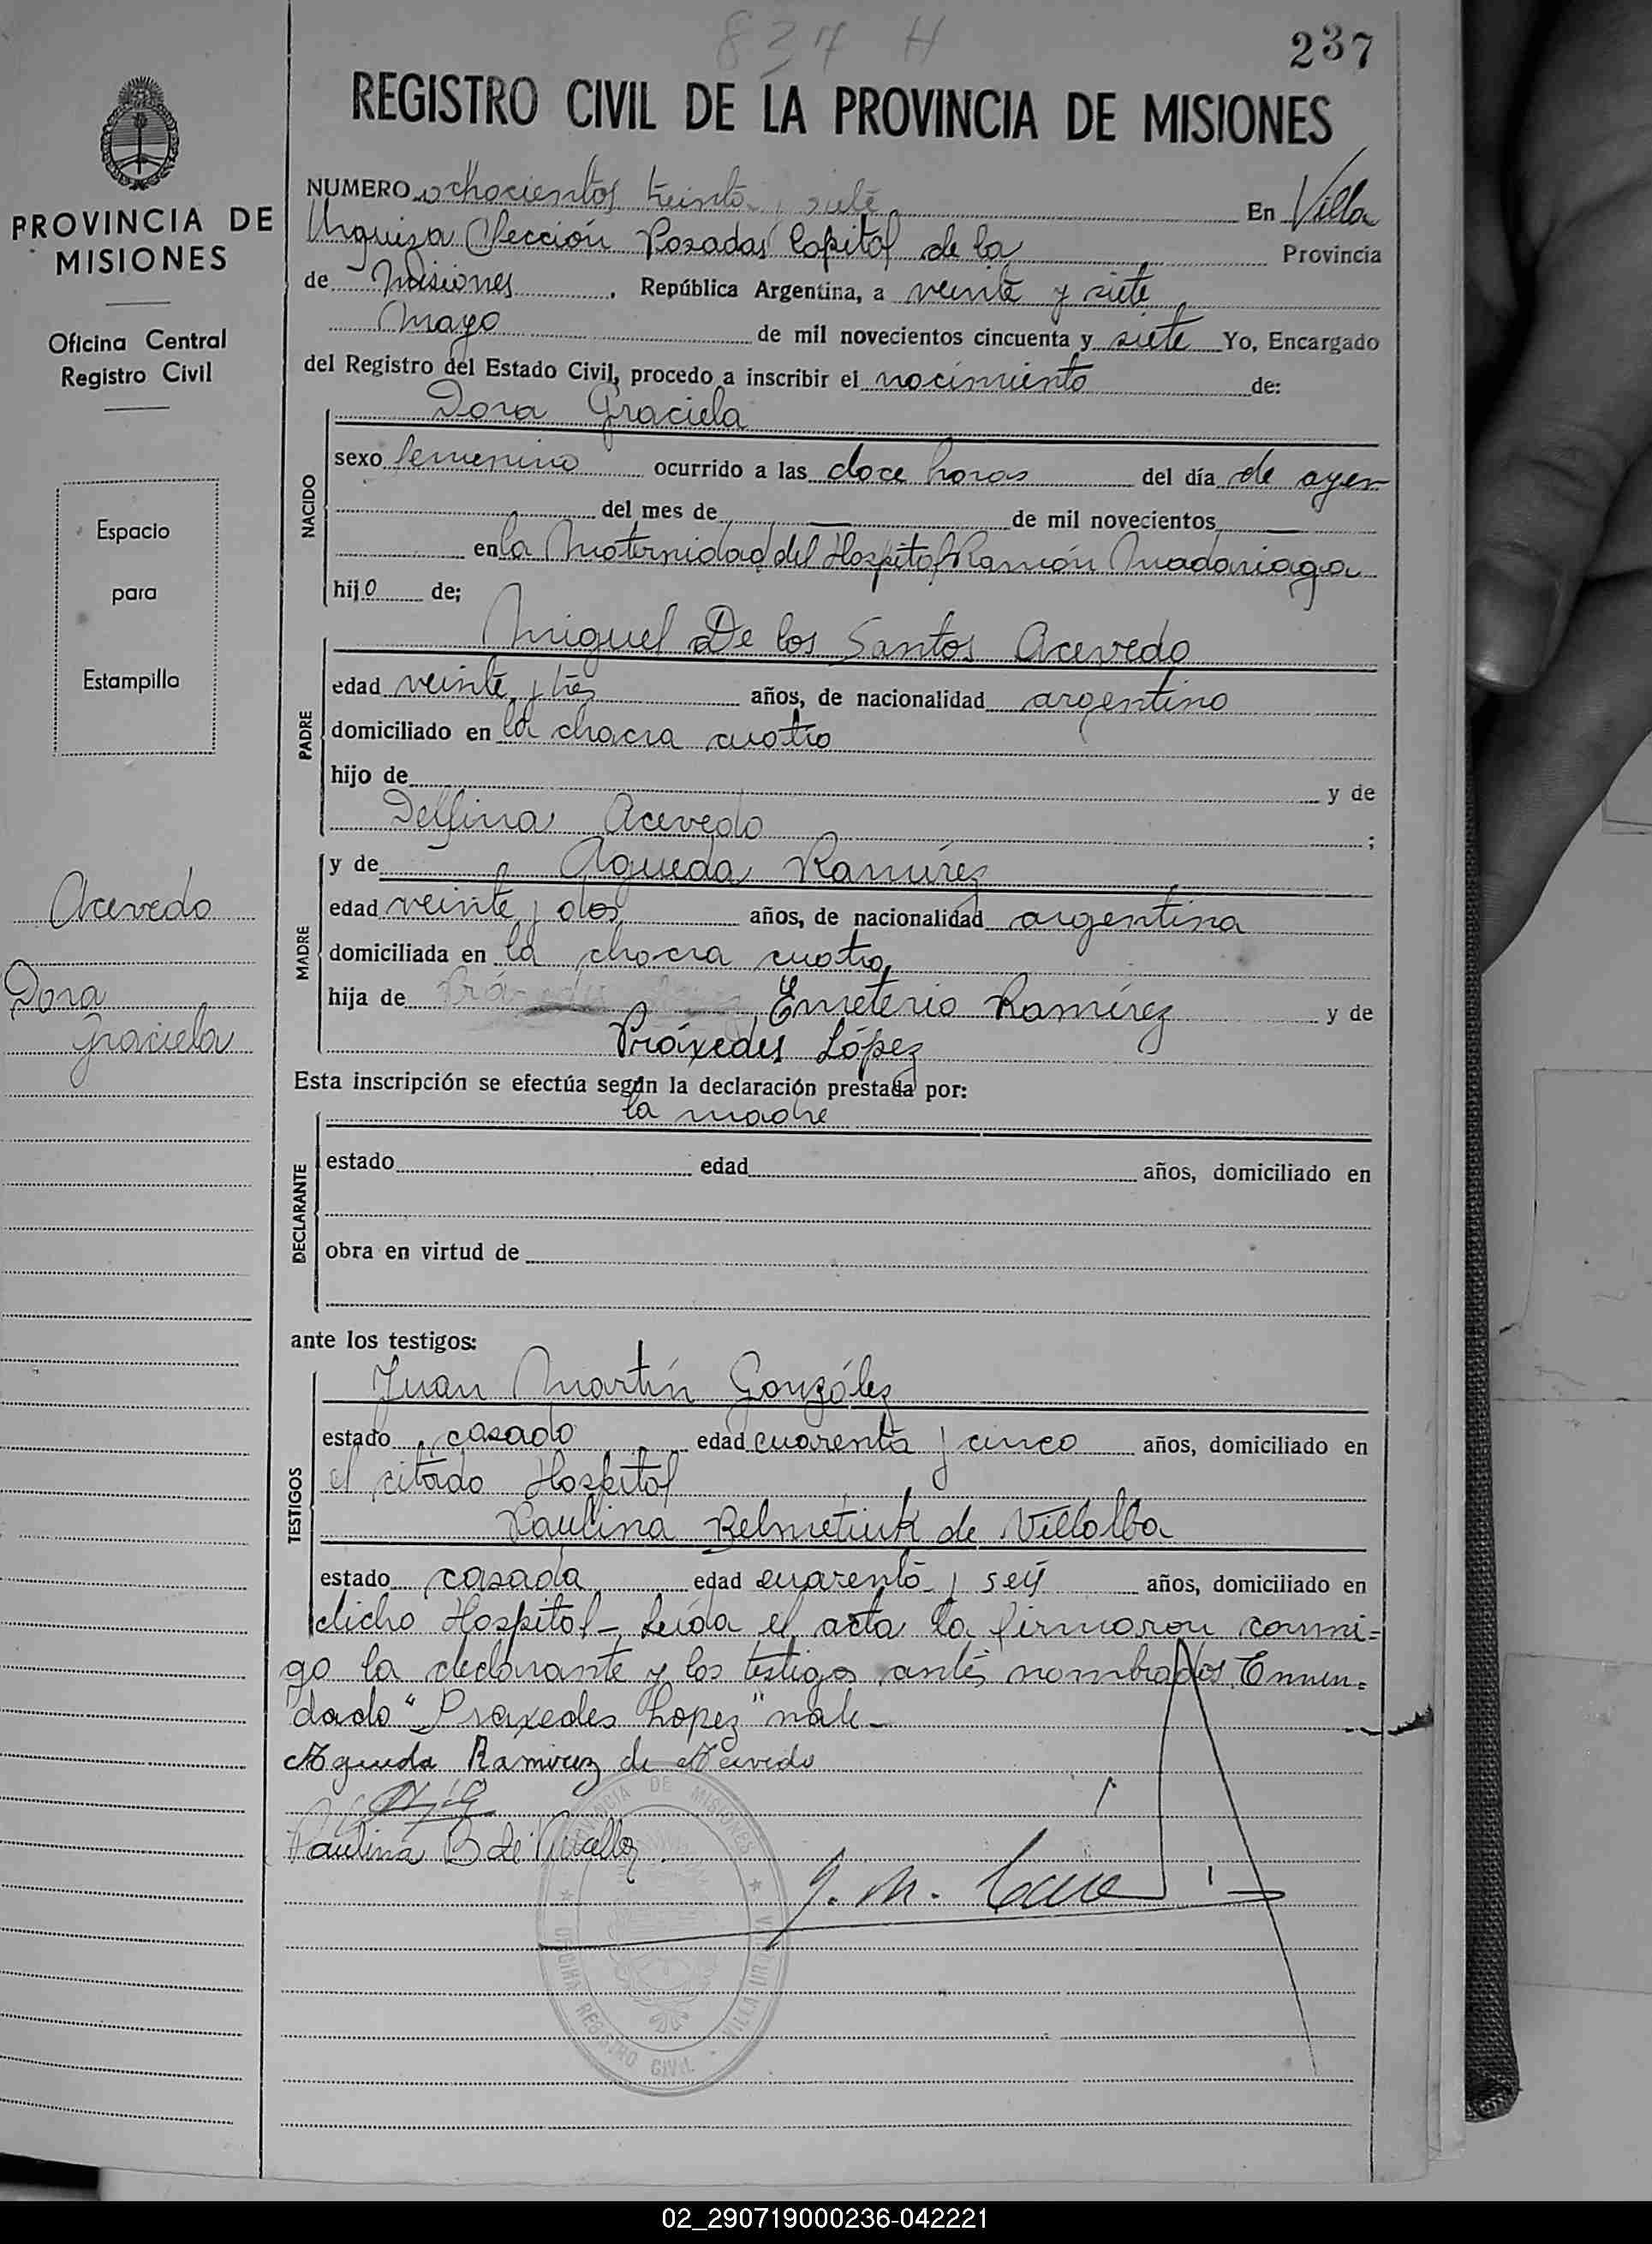 837 H
237
REGISTRO CIVIL DE LA PROVINCIA DE MISIONES
PROVINCIA DE
MISIONES
Oficina Central
Registro Civil
Espacio
para
Estampilla
Acevedo
Dora
Graciela
NUMERO ochocientos treinta y siete En Villa
Urquiza Sección Posadas Capital de la Provincia
de Misiones, República Argentina, a veinte y siete
Mayo de mil novecientos cincuenta y siete Yo, Encargado
del Registro del Estado Civil, procedo a inscribir el nacimiento de:
NACIDO
Dora Graciela
sexo femenino ocurrido a las doce horas del día de ayer
del mes de — de mil novecientos —
en la Maternidad del Hospital Ramón Madariaga
hijo de;
PADRE
Miguel De los Santos Acevedo
edad veinte y tres años, de nacionalidad argentino
domiciliado en la chacra cuatro
hijo de y de
Delfina Acevedo ;
MADRE
y de Agueda Ramírez
edad veinte y dos años, de nacionalidad argentina
domiciliada en la chacra cuatro
hija de Emeterio Ramírez y de
Práxedes López
Esta inscripción se efectúa según la declaración prestada por:
DECLARANTE
la madre
estado edad años, domiciliado en
obra en virtud de
ante los testigos:
TESTIGOS
Juan Martín González
estado casado edad cuarenta y cinco años, domiciliado en
el citado Hospital
Paulina Belmetiuk de Villalba
estado casada edad cuarenta y seis años, domiciliado en
dicho Hospital - Leída el acta la firmaron conmi=
go la declarante y los testigos antes nombrados. Enmen=
dado "Praxedes Lopez" vale -
Agueda Ramirez de Acevedo
Paulina B de
J. M.
PROVINCIA DE MISIONES
OFICINA REGISTRO CIVIL - VILLA URQUIZA
02_290719000236-042221